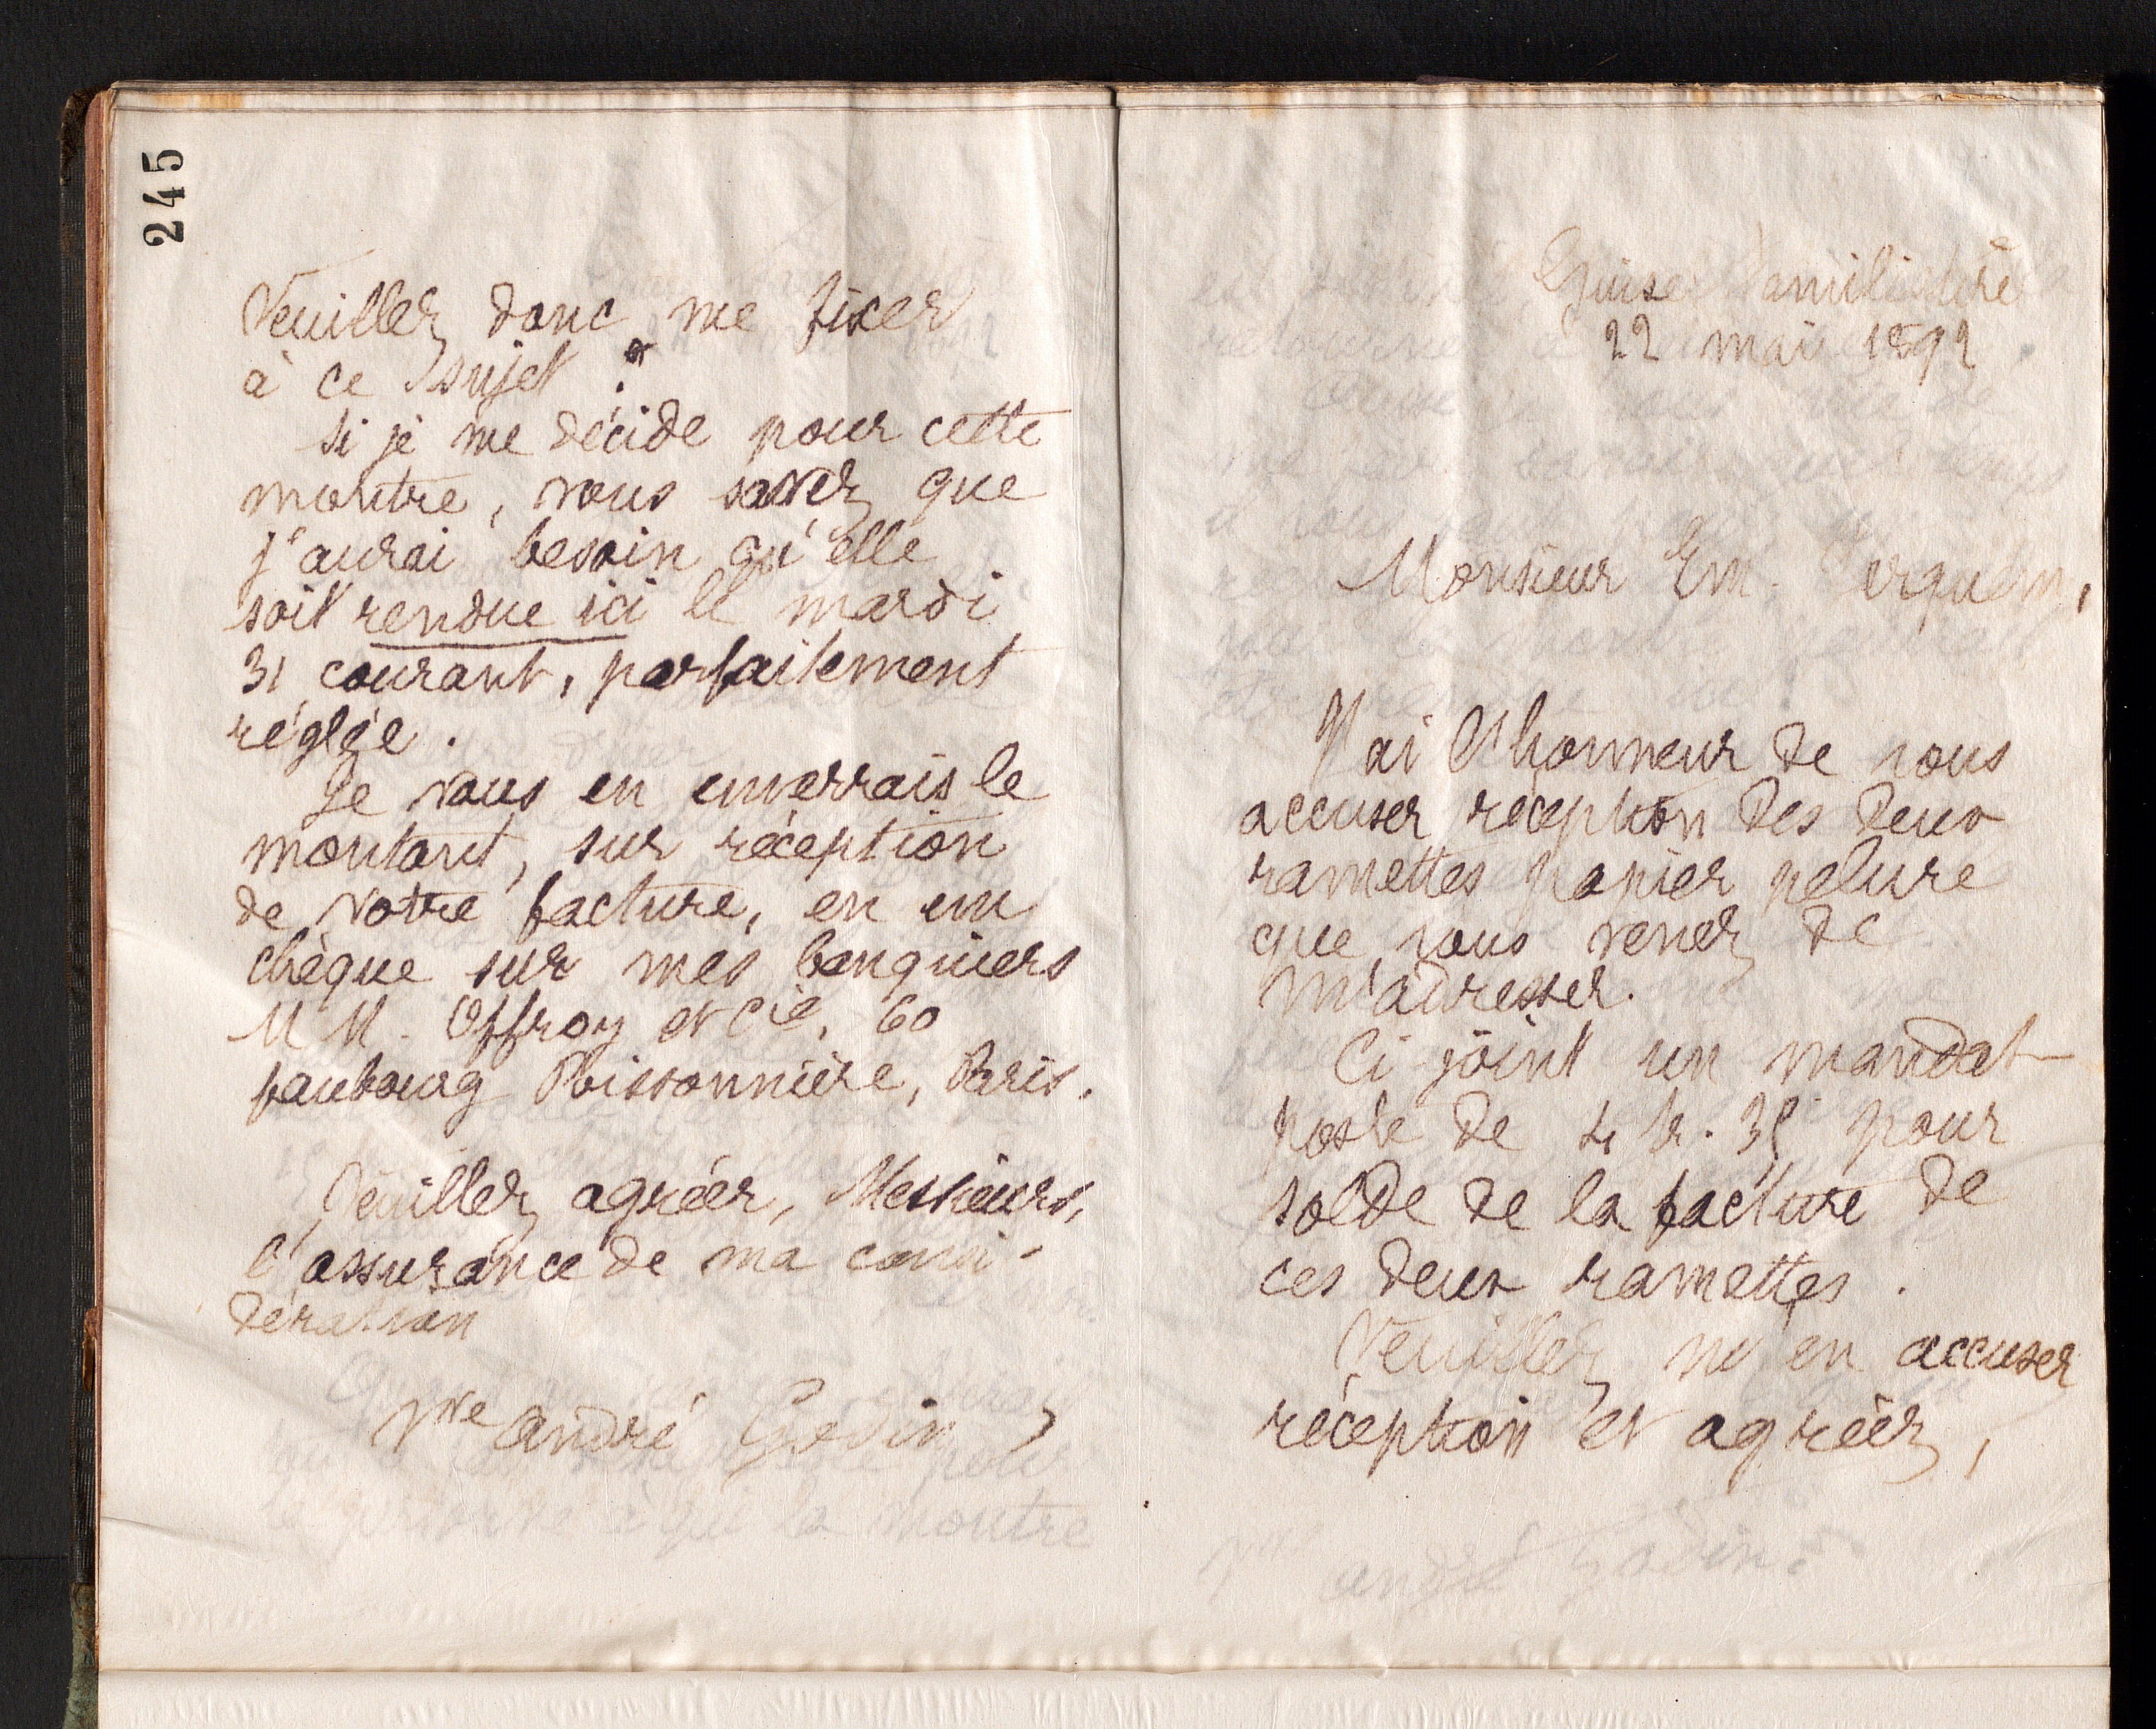 245
Veuillez donc me fixer
à ce sujet.
Si je me décide pour cette
montre, vous savez que
j'aurai besoin qu'elle
soit rendue ici le mardi
31 courant, parfaitement
réglée.
Je vous en enverrais le
montant, sur réception
de votre facture, en un
chèque sur mes banquiers
MM. Offroy et Cie, 60
faubourg Poissonnière, Paris.
Veuillez agréer, Messieurs,
l'assurance de ma consi-
dération
Vve André Godin
Guise Familistère
22 mai 1892
Monsieur Em.
J'ai l'honneur de vous
accuser réception des deux
ramettes papier pelure
que vous venez de
m'adresser.
Ci-joint un mandat
poste de 4 fr. 35 pour
solde de la facture de
ces deux ramettes.
Veuillez m'en accuser
réception et agréer,